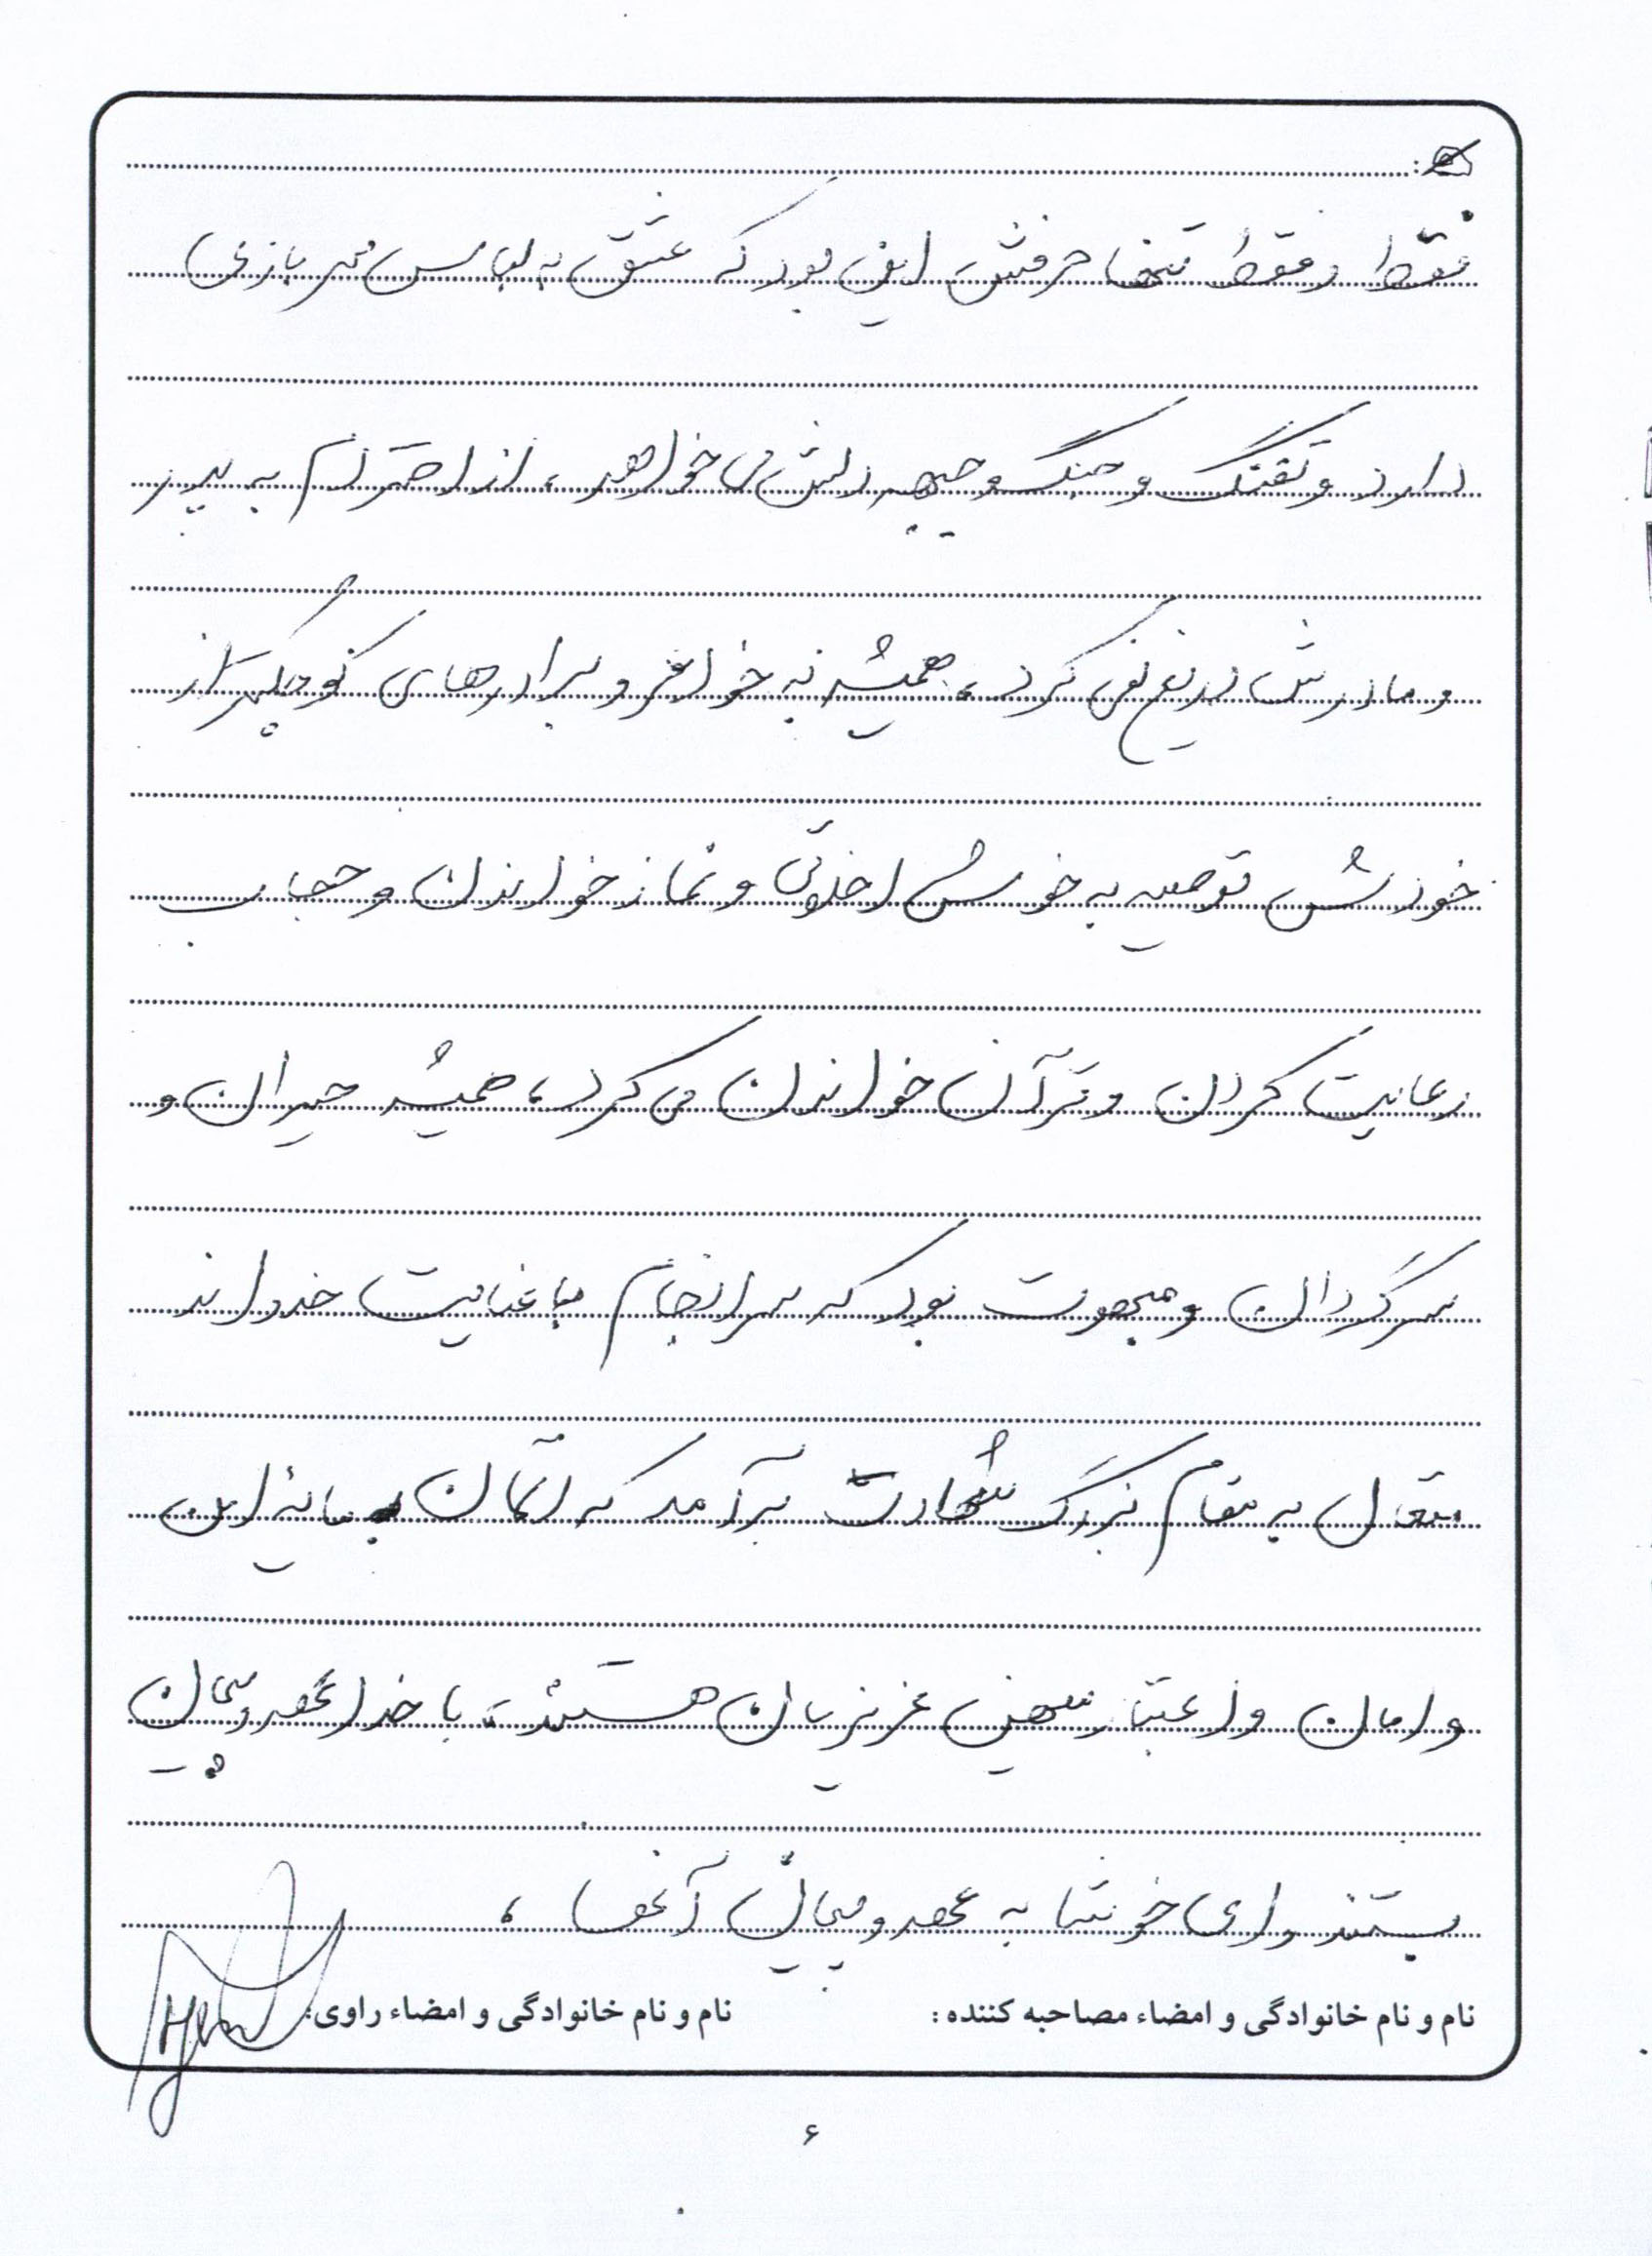 فقط و فقط تنها حرفش این بود که عشق به لباس سربازی
دارد و تفنگ و جنگ و جبهه دلش می خواهد، از احترام به پدر
و مادرش دریغ نمی کرد، همیشه به خواهر و برادرهای کوچکتر از
خودش توصیه به خوش اخلاقی و نماز خواندن و حجاب
رعایت کردن و قرآن خواندن می کرد، همیشه حیران و
سرگردان و مبهوت بود که سرانجام با عنایت خداوند
متعال به مقام بزرگ شهادت برآمد که آنان مایه این
و امان و اعتبار میهن عزیزمان هستند، با خدا عهد و پیمان
بستند و ای خوشا به عهد و پیمان آنها،
نام و نام خانوادگی و امضاء مصاحبه کننده : نام و نام خانوادگی و امضاء راوی:
۶